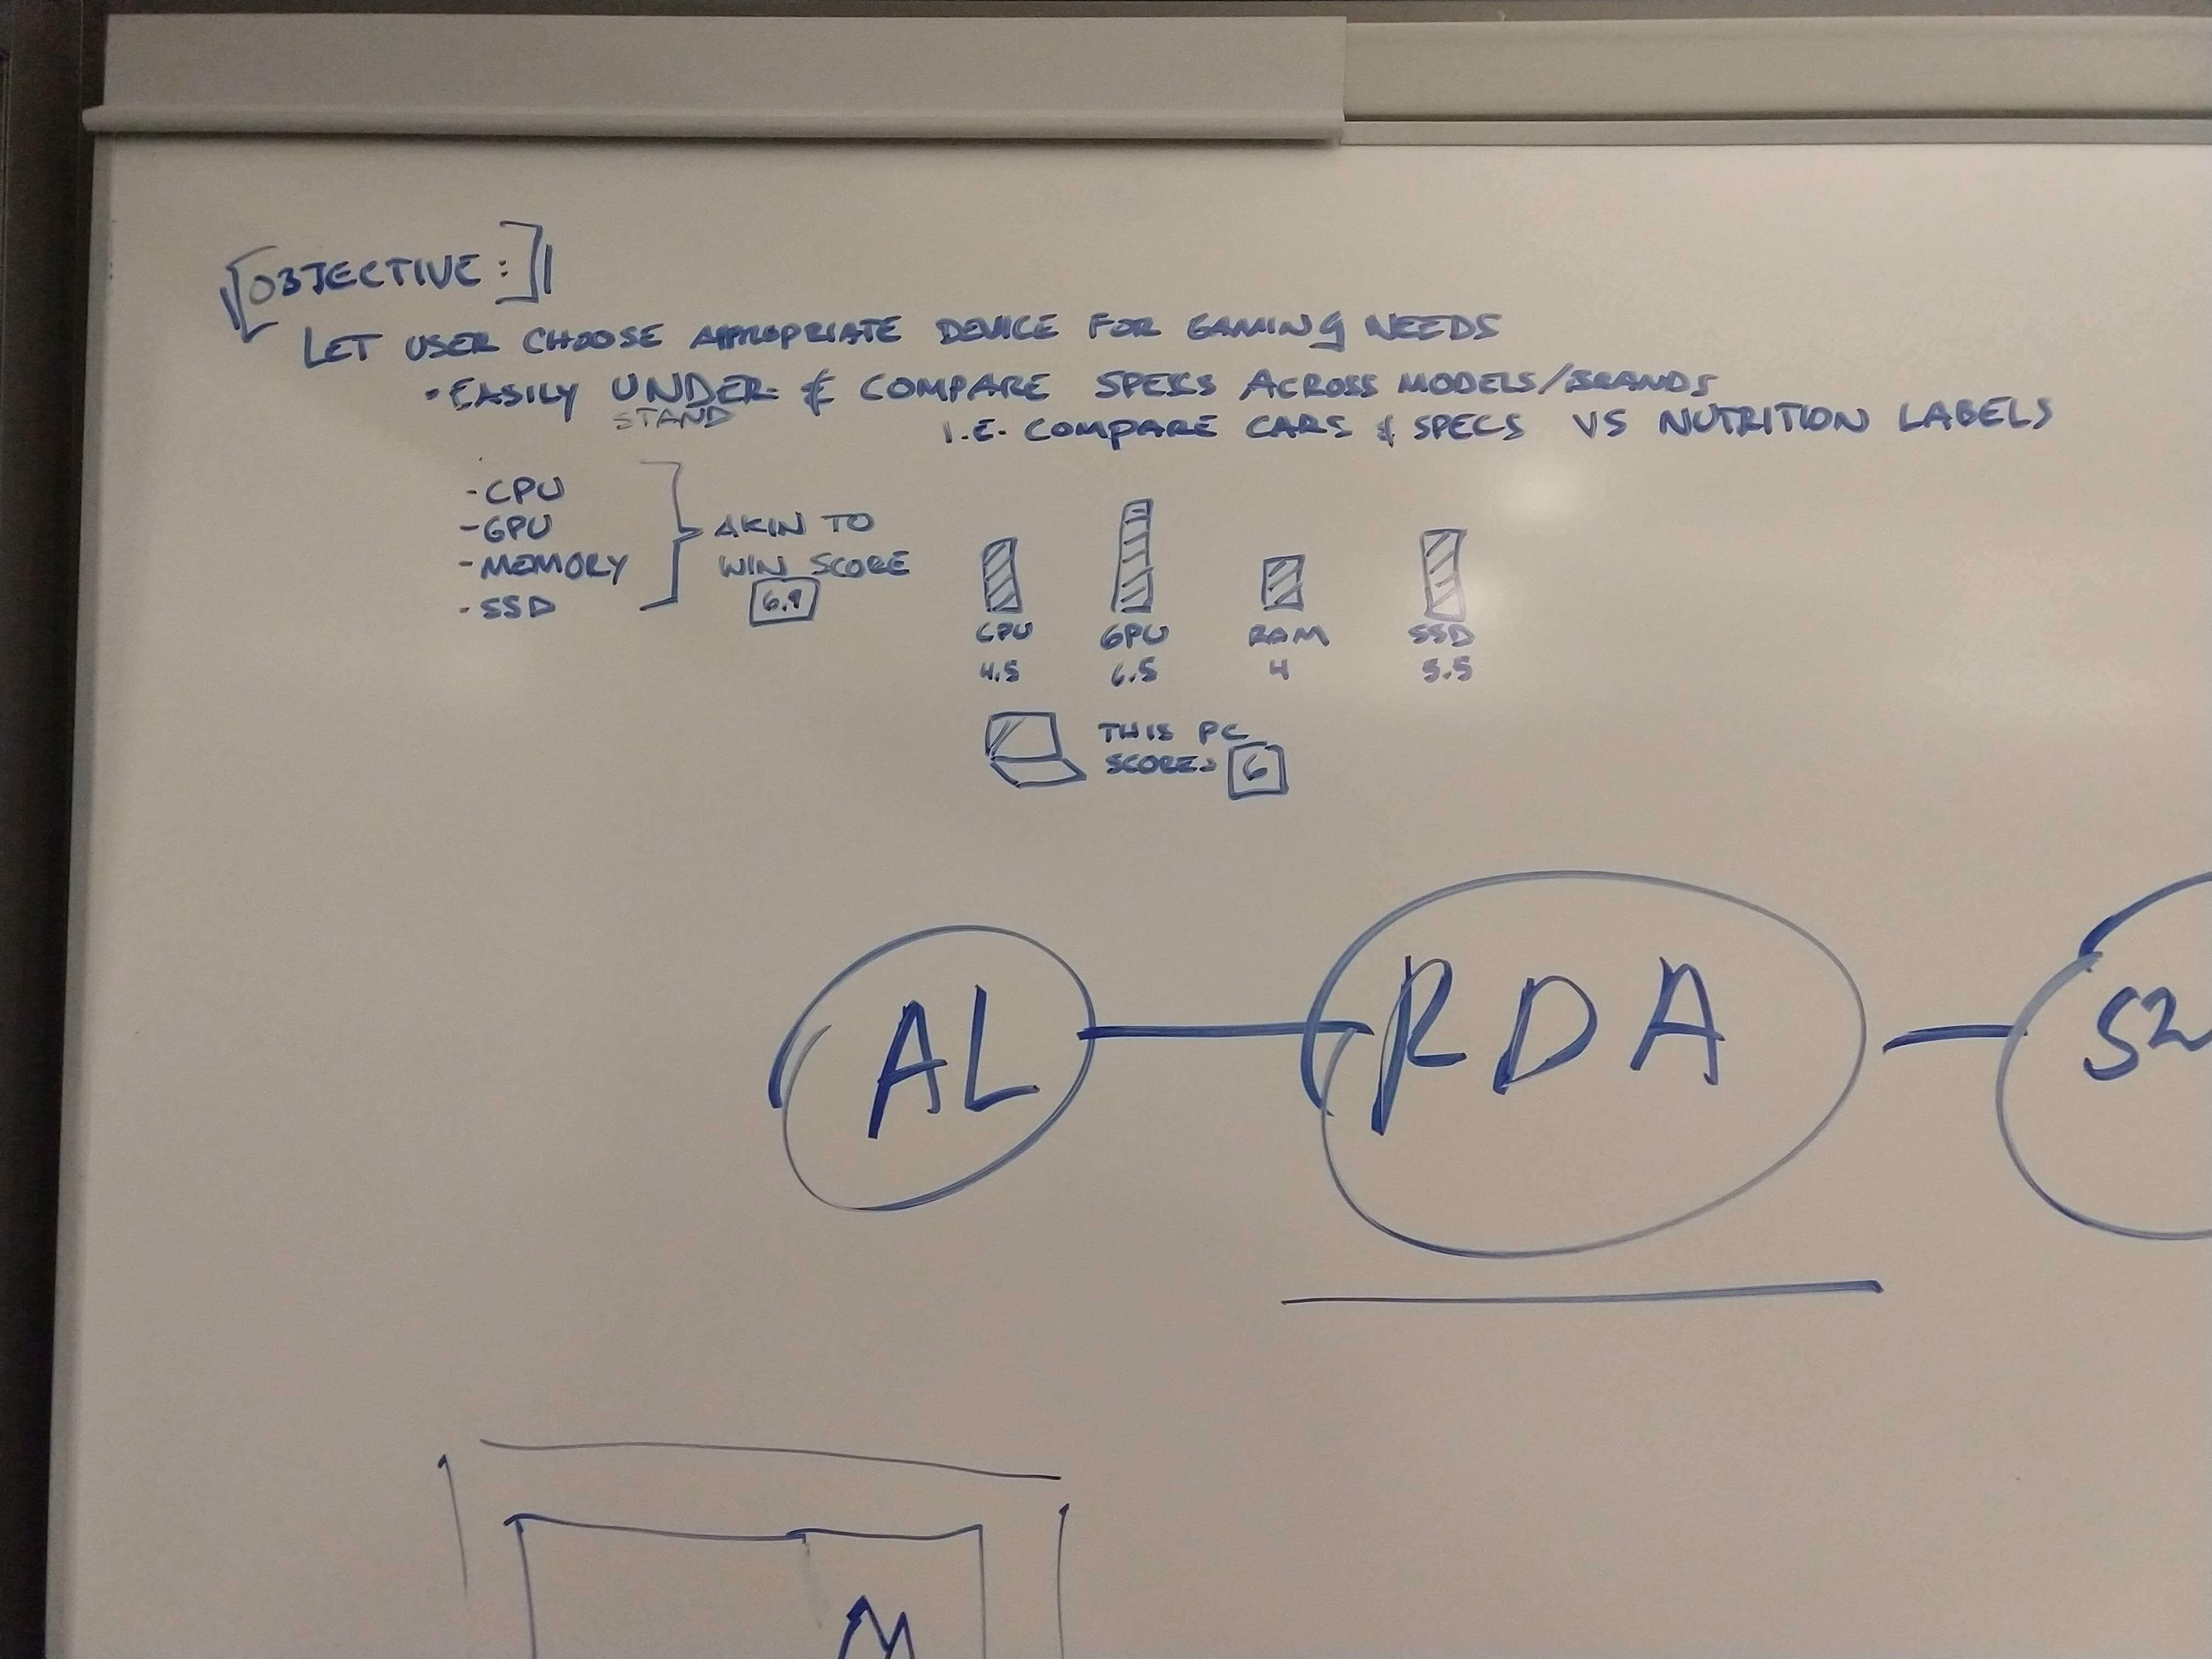 [OBJECTIVE:]
LET USER CHOOSE APPROPRIATE DEVICE FOR GAMING NEEDS
• EASILY UNDER- & COMPARE SPECS ACROSS MODELS/BRANDS
STAND
I.E. COMPARE CARS & SPECS VS NUTRITION LABELS
- CPU
- GPU
- MEMORY
- SSD
AKIN TO
WIN SCORE
6.9
CPU GPU RAM SSD
4.5 6.5 4 5.5
THIS PC
SCORES 6
AL RDA
M